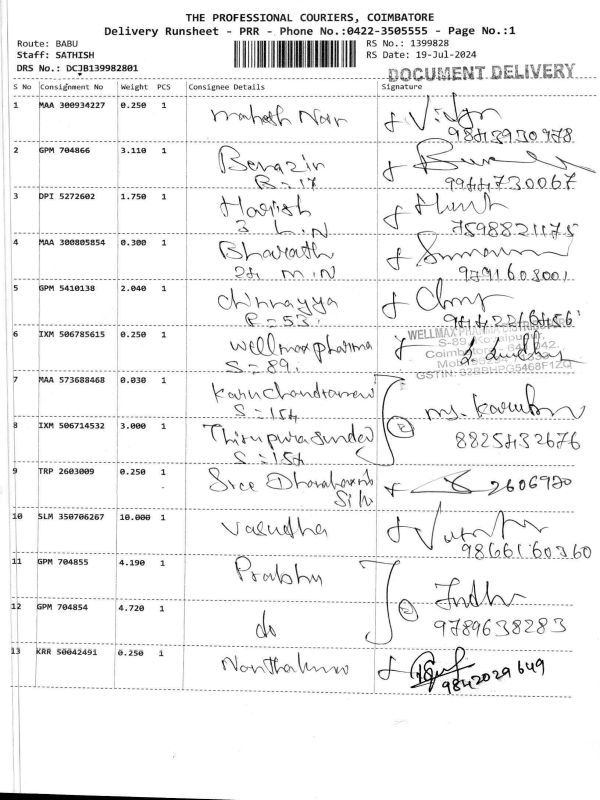 THE PROFESSIONAL COURIERS, COIMBATORE
Delivery Runsheet - PRR - Phone No.:0422-3505555 - Page No.:1
Route: BABU RS No.: 1399828
Staff: SATHISH RS Date: 19-Jul-2024
DRS No.: DCJB139982801
DOCUMENT DELIVERY
S No Consignment No Weight PCS Consignee Details Signature
1 MAA 300934227 0.250 1 mahesh Nair
2 GPM 704866 3.110 1 Benazir
B=17 9944730067
3 DPI 5272602 1.750 1 Harish
3 L.N 7598821175
4 MAA 300805854 0.300 1 Bharath
24 M.N 9791608001
5 GPM 5410138 2.040 1 Chinnayya
E=53.
6 IXM 506785615 0.250 1 wellmaxpharma
WELLMAX PHARMA
S=89. S-89,
Coimbatore
GSTIN:
7 MAA 573688468 0.030 1
S=154
8 IXM 506714532 3.000 1 Thirupurasundari 8825432676
S=154
9 TRP 2603009 0.250 1 Sree 2606970
10 SLM 350706267 10.000 1 Vasudha
98661 60360
11 GPM 704855 4.190 1 Prabhu
12 GPM 704854 4.720 1 do 2
9789638283
13 KRR 50042491 0.250 1
9842029649